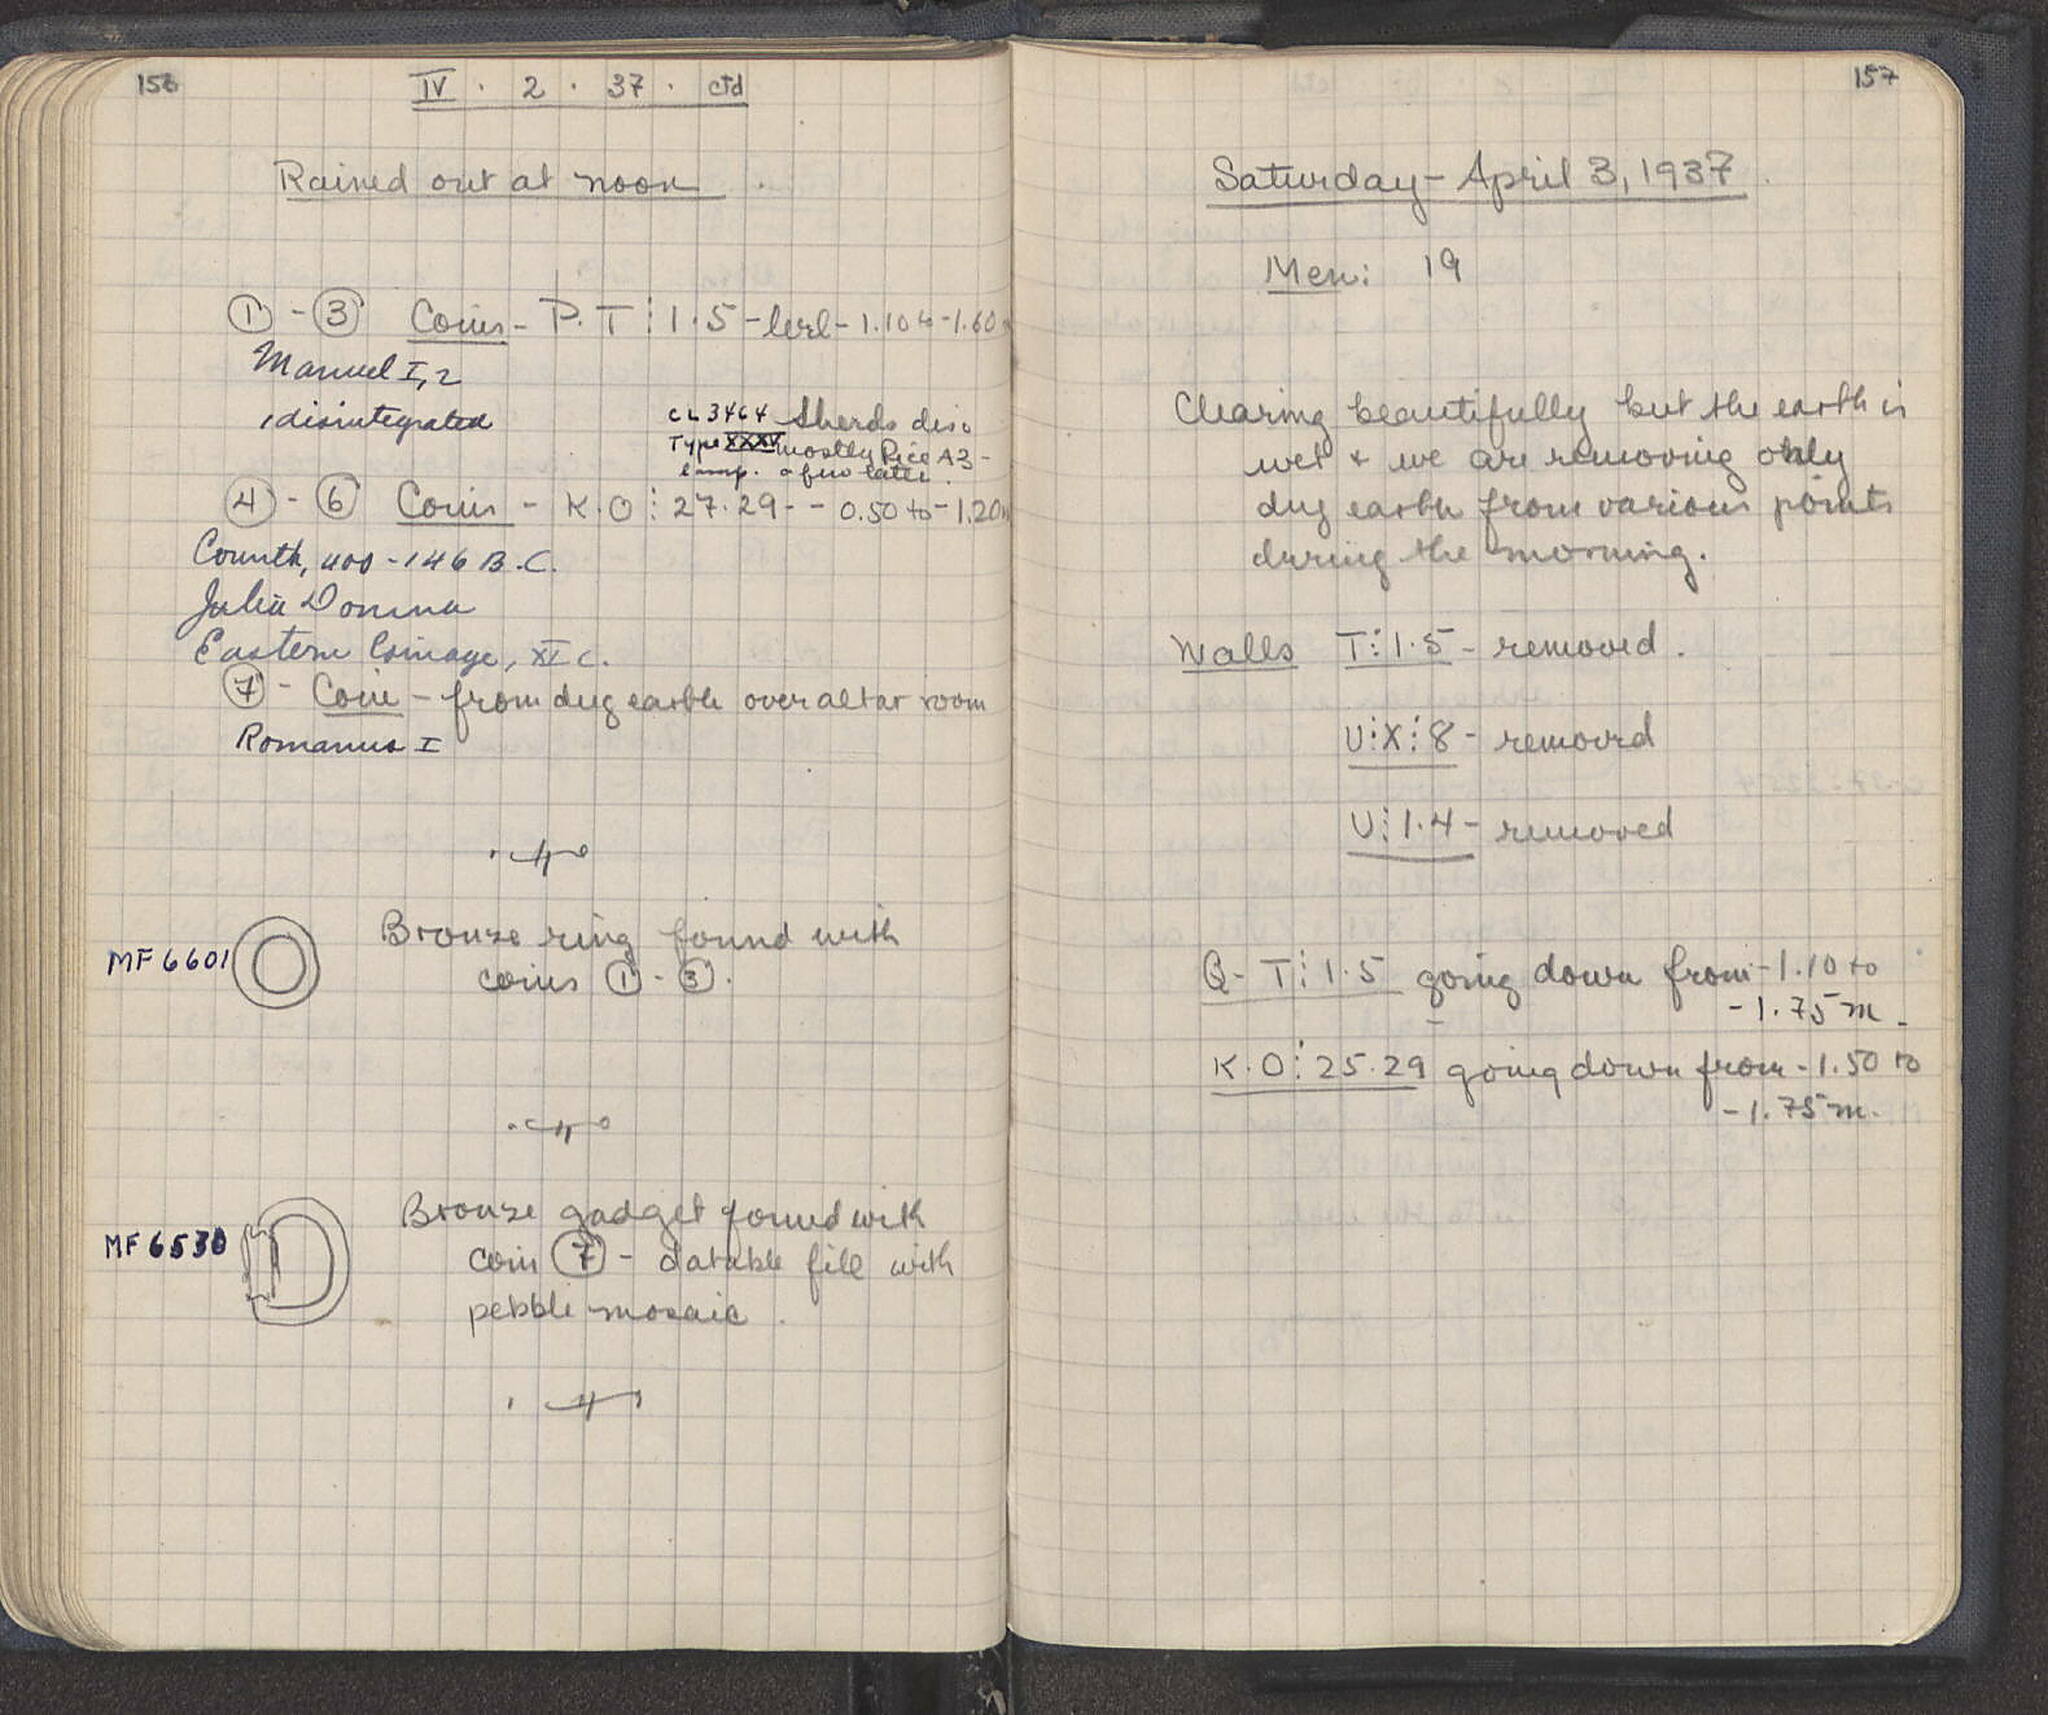 156
IV · 2 · 37 · ctd
Rained out at noon.
① - ③ Coins - P.T⋮1.5 - level - 1.10 to - 1.60
Manuel I, 2
1 disintegrated
CL 3464 Sherds disc
Type XXXV mostly Rice A3 -
lamp. a few later.
④ - ⑥ Coins - K.O⋮27.29 - - 0.50 to - 1.20m
Corinth, 400 - 146 B.C.
Julia Domna
Eastern Coinage, XI c.
⑦ - Coin - from dug earth over altar room
Romanus I
MF 6601
Bronze ring found with
coins ① - ③.
MF 6530
Bronze gadget found with
coin ⑦ - datable fill with
pebble mosaic.
157
Saturday - April 3, 1937.
Men: 19
Clearing beautifully but the earth is
wet + we are removing only
dug earth from various points
during the morning.
Walls T⋮1.5 - removed.
U⋮X⋮8 - removed
U⋮1.4 - removed
Q - T⋮1.5 going down from - 1.10 to
- 1.75 m.
K.O⋮25.29 going down from - 1.50 to
- 1.75 m.